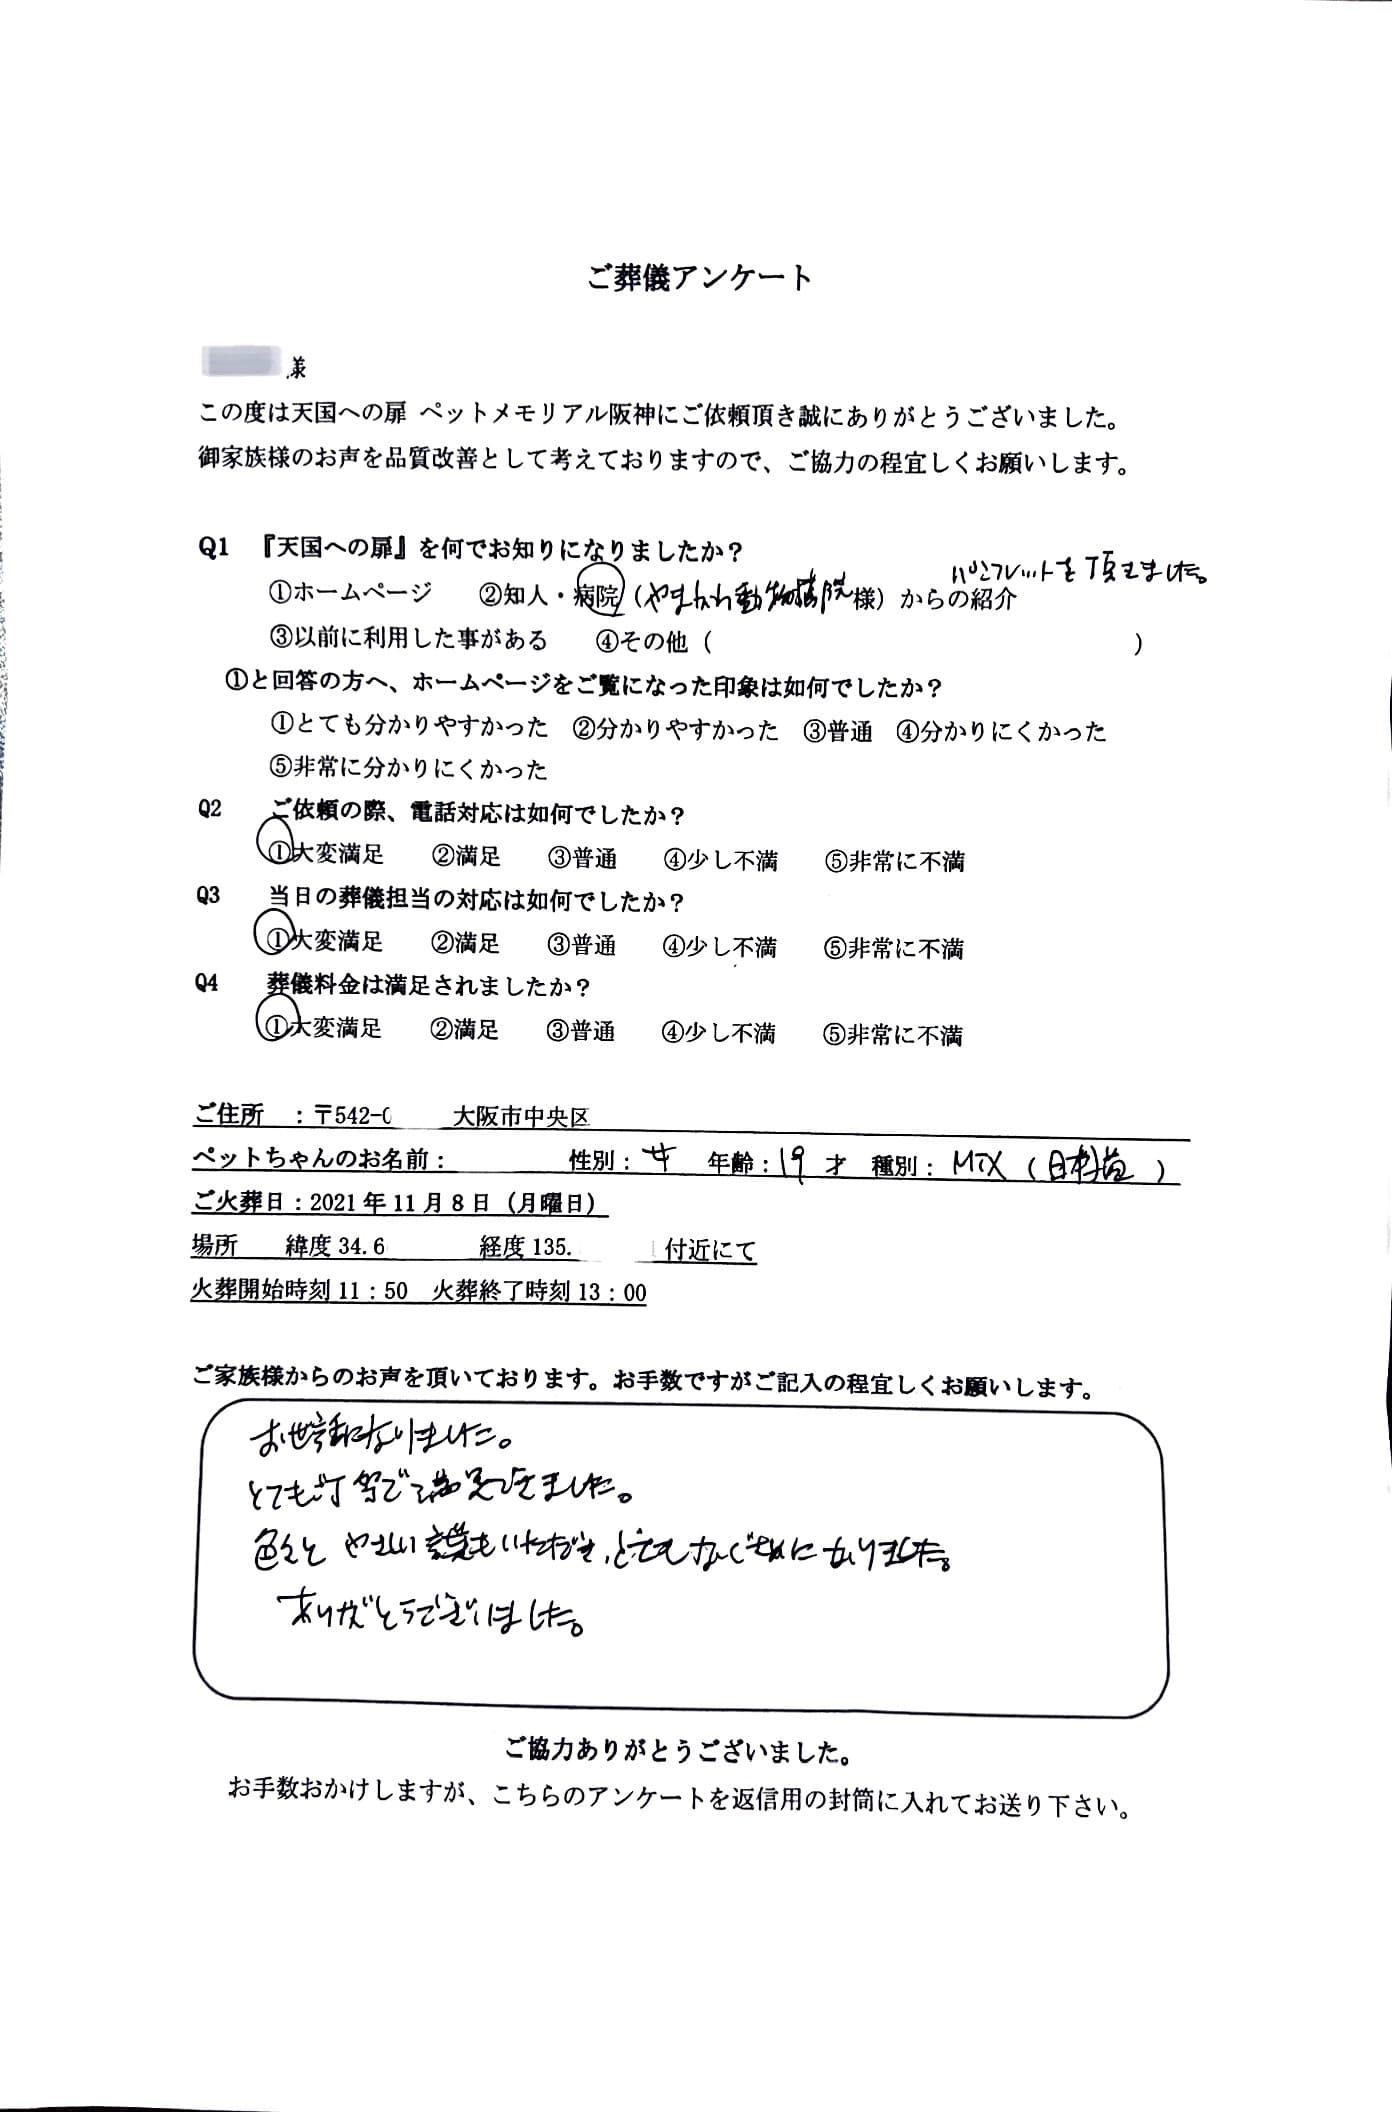 ご葬儀アンケート
様
この度は天国への扉 ペットメモリアル阪神にご依頼頂き誠にありがとうございました。
御家族様のお声を品質改善として考えておりますので、ご協力の程宜しくお願いします。
Q1 『天国への扉』を何でお知りになりましたか?
パンフレットを頂きました。
①ホームページ ②知人・病院(やまかわ動物病院様)からの紹介
③以前に利用した事がある ④その他( )
①と回答の方へ、ホームページをご覧になった印象は如何でしたか?
①とても分かりやすかった ②分かりやすかった ③普通 ④分かりにくかった
⑤非常に分かりにくかった
Q2 ご依頼の際、電話対応は如何でしたか?
①大変満足 ②満足 ③普通 ④少し不満 ⑤非常に不満
Q3 当日の葬儀担当の対応は如何でしたか?
①大変満足 ②満足 ③普通 ④少し不満 ⑤非常に不満
Q4 葬儀料金は満足されましたか?
①大変満足 ②満足 ③普通 ④少し不満 ⑤非常に不満
ご住所 :〒542-0 大阪市中央区
ペットちゃんのお名前: 性別:女 年齢:19 才 種別:MIX(日本猫)
ご火葬日:2021年11月8日(月曜日)
場所 緯度34.6 経度135. 付近にて
火葬開始時刻11:50 火葬終了時刻13:00
ご家族様からのお声を頂いております。お手数ですがご記入の程宜しくお願いします。
お世話になりました。
とても丁寧で満足できました。
色々と やさしい言葉もいただき、とてもなぐさめになりました。
ありがとうございました。
ご協力ありがとうございました。
お手数おかけしますが、こちらのアンケートを返信用の封筒に入れてお送り下さい。